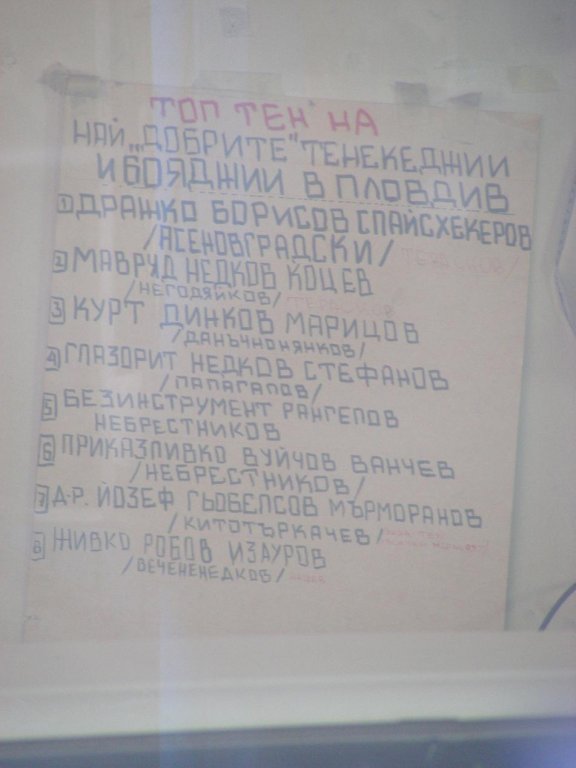 ТОП ТЕН НА
НАЙ „ДОБРИТЕ" ТЕНЕКЕДЖИИ
И БОЯДЖИИ В ПЛОВДИВ
1 ДРАЖКО БОРИСОВ СПАЙСХЕКЕРОВ
/АСЕНОВГРАДСКИ/
2 МАВРУД НЕДКОВ КОЦЕВ
/НЕГОДЯЙКОВ/
3 КУРТ ДИНКОВ МАРИЦОВ
/ДАНЪЧНОНЯНКОВ/
4 ГЛАЗОРИТ НЕДКОВ СТЕФАНОВ
/ПАПАГАЛОВ/
5 БЕЗИНСТРУМЕНТ РАНГЕЛОВ
НЕБРЕСТНИКОВ
6 ПРИКАЗЛИВКО ВУЙЧОВ ВАНЧЕВ
/НЕБРЕСТНИКОВ/
7 Д-Р. ЙОЗЕФ ГЬОБЕЛСОВ МЪРМОРАНОВ
/КИТОТЪРКАЧЕВ/
8 ЖИВКО РОБОВ ИЗАУРОВ
/ВЕЧЕНЕНЕДКОВ/